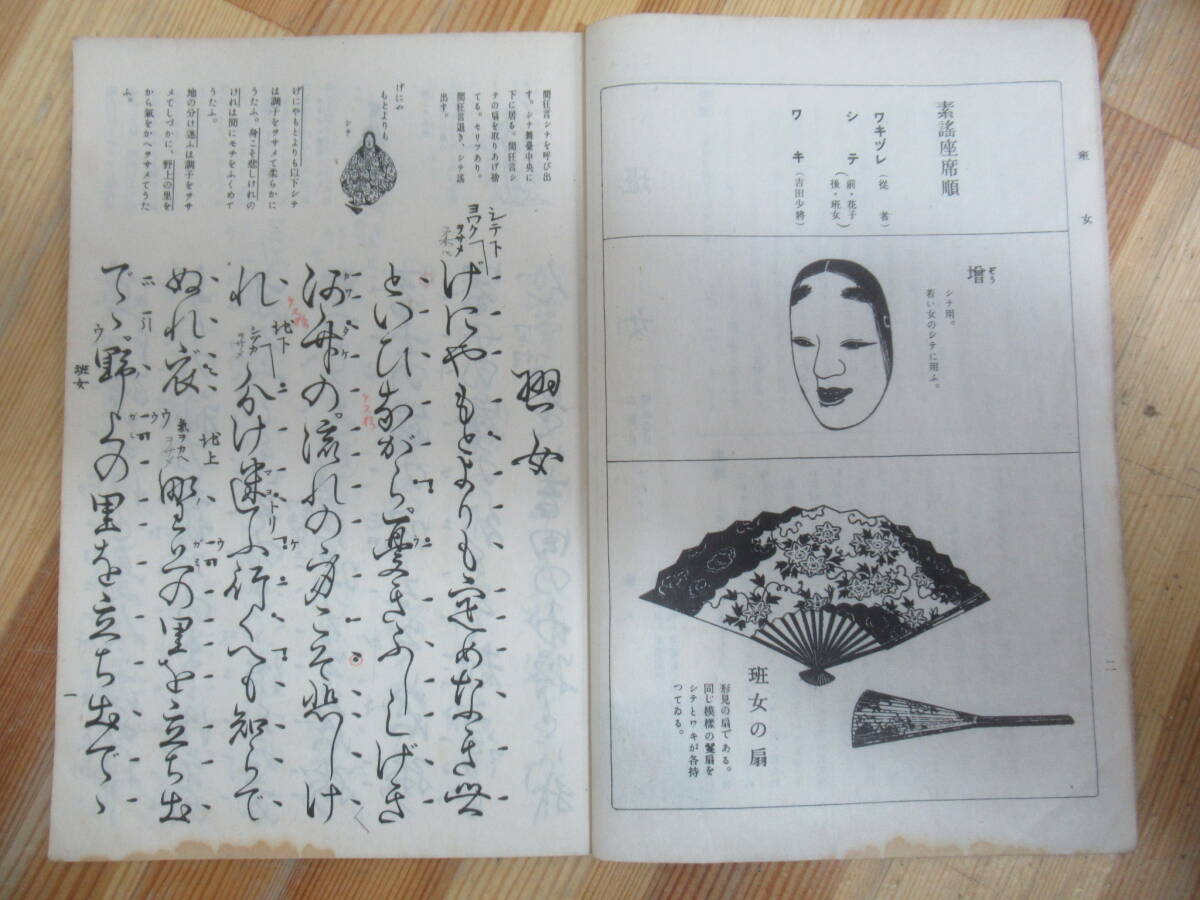 班女
素謡座席順
ワキヅレ(従者)
シテ(前・花子 後・班女)
ワキ(吉田少將)
増
ぞう
シテ用。
若い女のシテに用ふ。
班女の扇
形見の扇である。
同じ模様の鬘扇を
シテとワキが各持
つてゐる。
二
間狂言シテを呼び出
す。シテ舞臺中央に
下に居る。間狂言シ
テの扇を取りあげ捨
てる。セリフあり。
間狂言退き、シテ謡
出す。
げにや
もとよりも
シテ
げにやもとよりも以下シテ
は調子をヲサメて柔らかに
うたふ。身こそ悲しけれの
けれは閑にモチをふくめて
うたふ。
地の分け迷ふは調子をヲサ
メてしづかに、野上の里を
から氣をかへヲサメてうた
ふ。
班女
シテ下
ヨワク
ヲサメ
げにやもとよりも定めなき世
といひながら。憂きふししげき
河竹の。流れの身こそ悲しけ
れ
地下
シヅカ
ヲサメ
分け迷ふ行くへも知らで
ぬれ衣
地上
氣ヲカヘ
ヲサメ
野上の里を立ち出
でゝ野上の里を立ち出でゝ
班女
一